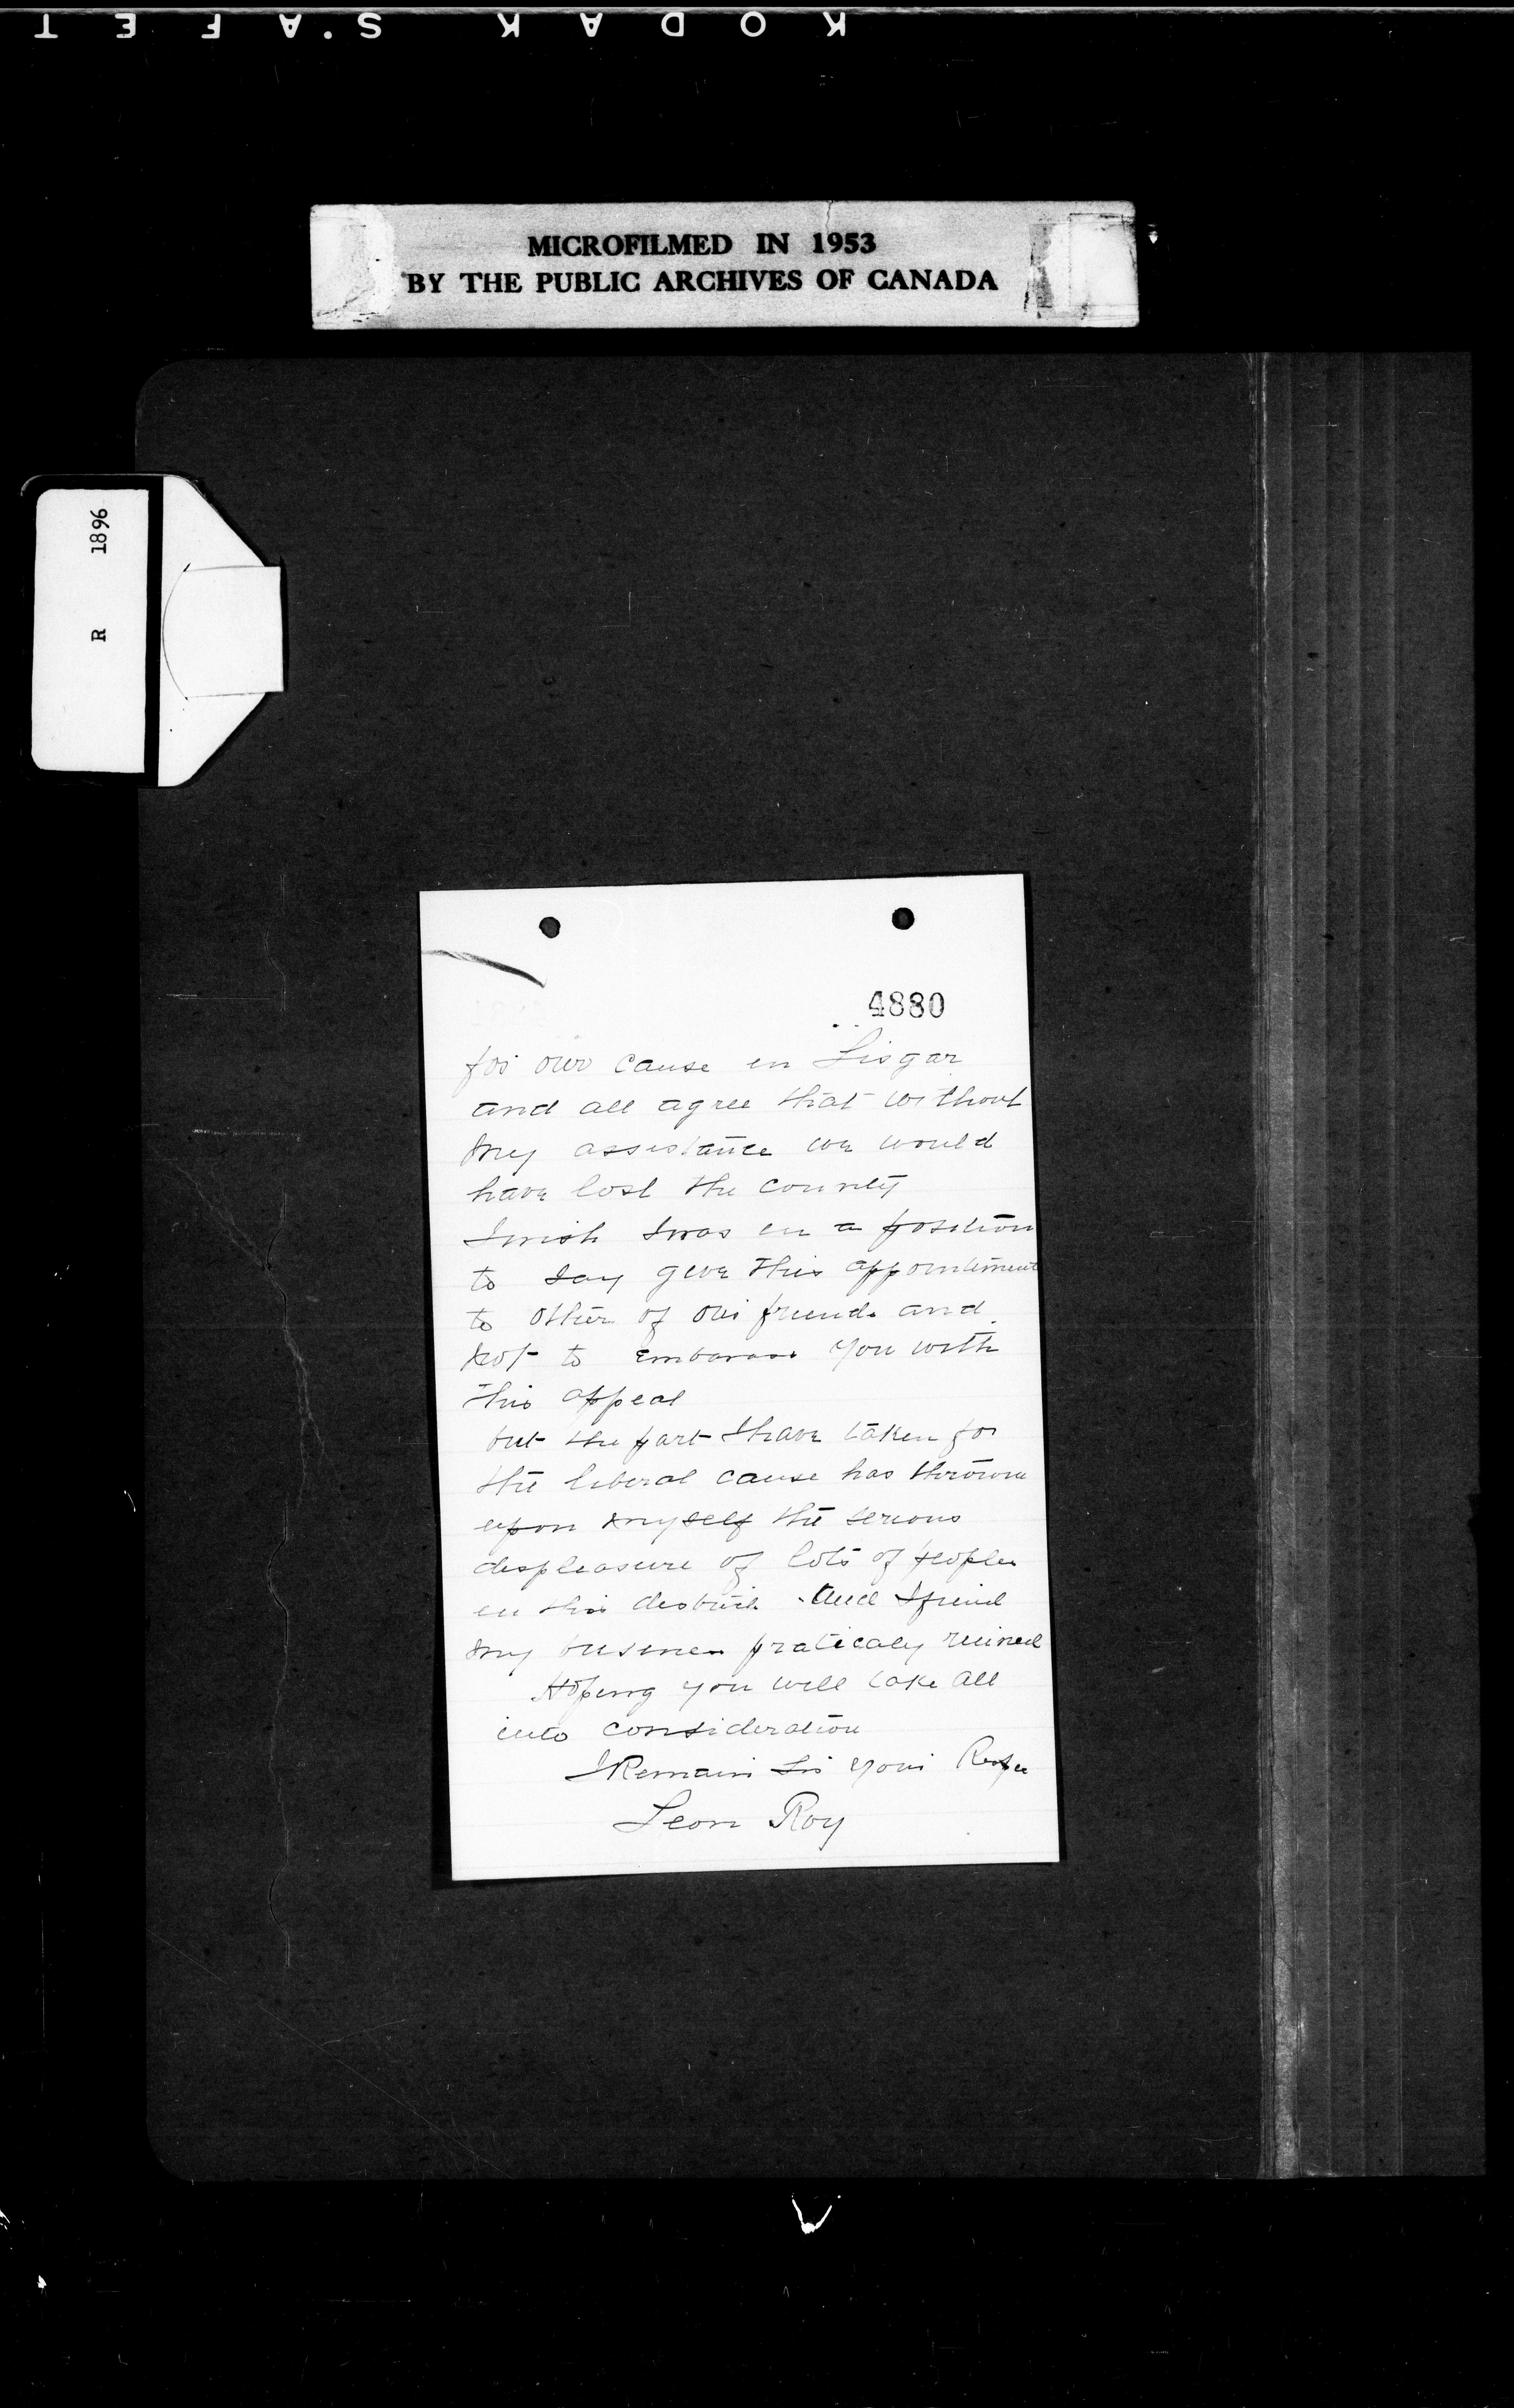 KODAK S'AFET
MICROFILMED IN 1953
BY THE PUBLIC ARCHIVES OF CANADA
R 1896
4880
for our cause in Lisgar
and all agree that without
my assistance we would
have lost the county
I wish I was in a position
to say give this appointment
to other of our friends and
not to embarass you with
this appeal
but the part I have taken for
the liberal cause has thrown
upon myself the serious
displeasure of lots of people
in this district. And I find
my business praticaly ruined
Hoping you will take all
into consideration
I Remain Sir your
Leon Roy